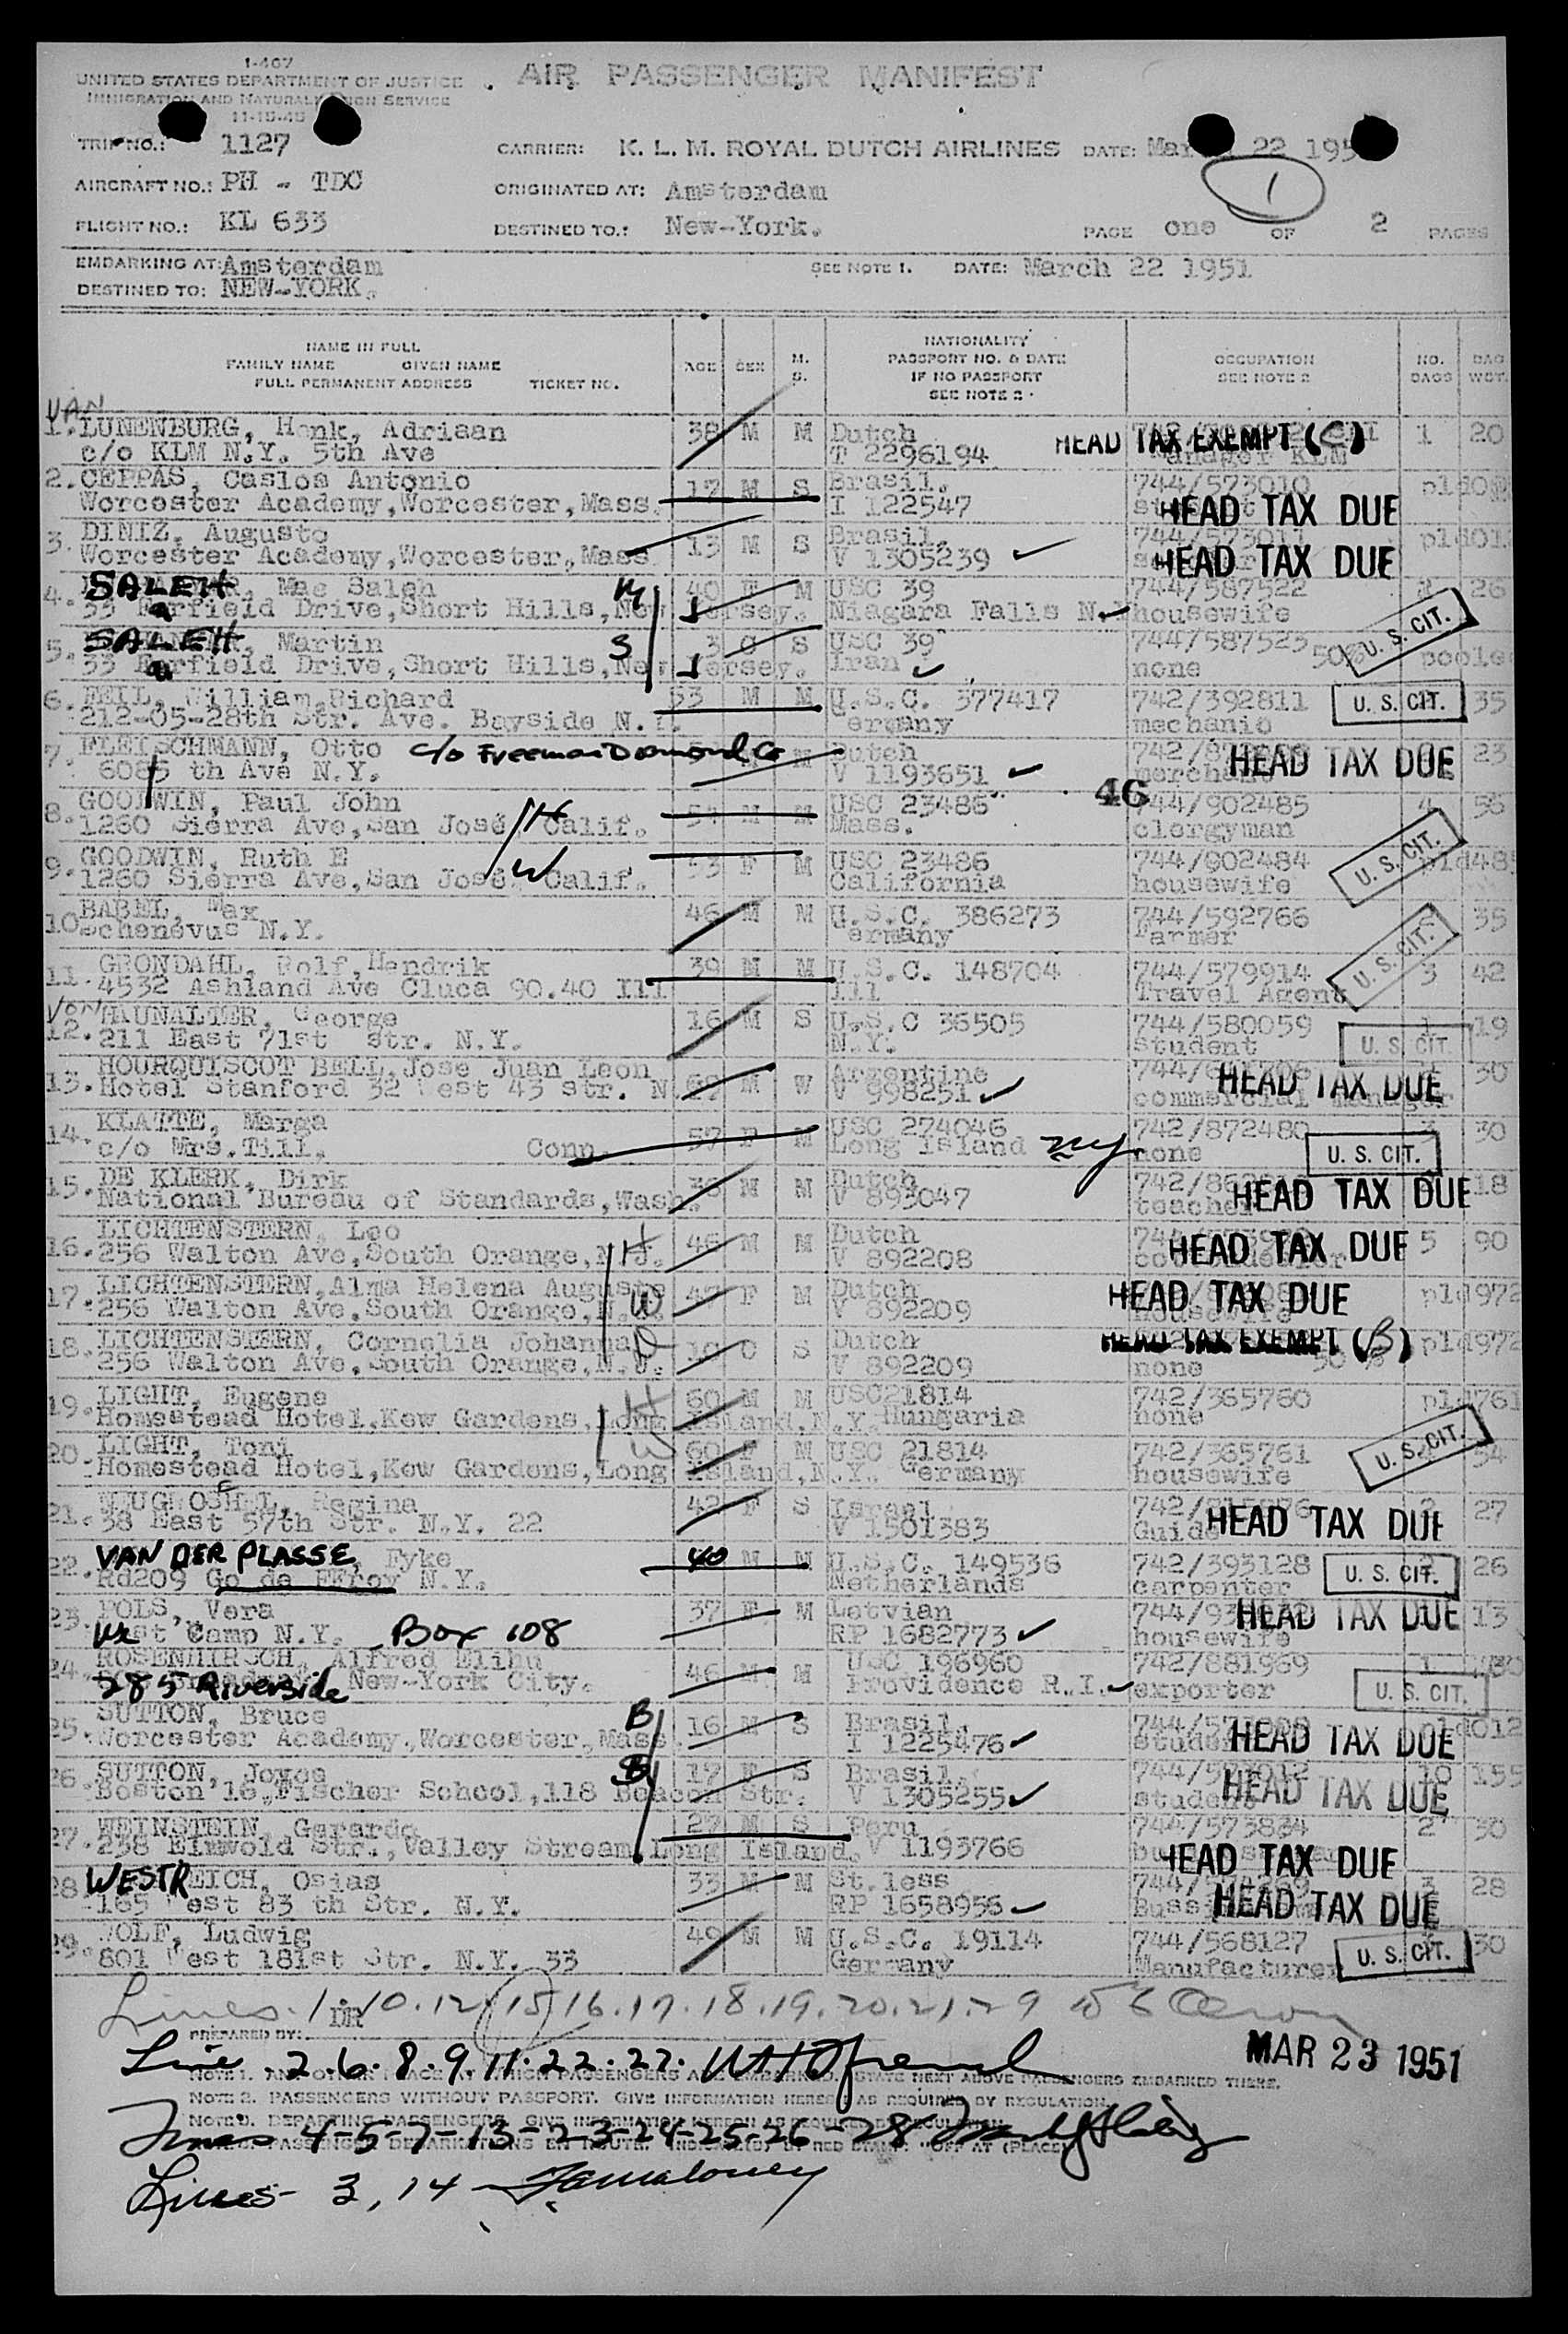 1-407
UNITED STATES DEPARTMENT OF JUSTICE
IMMIGRATION AND NATURALIZATION SERVICE
11-15-45
AIR PASSENGER MANIFEST
TRIP NO.: 1127 CARRIER: K. L. M. ROYAL DUTCH AIRLINES DATE: March 22 195
AIRCRAFT NO.: PH - TDC ORIGINATED AT: Amsterdam 1
FLIGHT NO.: KL 633 DESTINED TO.: New-York. PAGE one OF 2 PAGES
EMBARKING AT: Amsterdam SEE NOTE 1. DATE: March 22 1951
DESTINED TO: NEW-YORK.
NAME IN FULL
FAMILY NAME GIVEN NAME
FULL PERMANENT ADDRESS TICKET NO.
AGE SEX M. S.
NATIONALITY
PASSPORT NO. & DATE
IF NO PASSPORT
SEE NOTE 2
OCCUPATION
SEE NOTE 2
NO. BAGS
BAG WGT.
VAN
1. LUNENBURG, Henk, Adriaan 38 M M Dutch 1 20
c/o KLM N.Y. 5th Ave T 2296194 HEAD TAX EXEMPT (C) Manager KLM
2. CEPPAS, Caslos Antonio 17 M S Brasil. 744/573010
Worcester Academy, Worcester, Mass. I 122547 HEAD TAX DUE
3. DINIZ, Augusto 13 M S Brasil. 744/573011
Worcester Academy, Worcester, Mass V 1305239 HEAD TAX DUE
4. SALEH Mae Saleh M 40 F M USC 39 744/587522 26
33 Farfield Drive, Short Hills, New Jersey. Niagara Falls N. housewife
5. SALEH Martin S 3 C S USC 39 744/587523 U. S. CIT.
33 Farfield Drive, Short Hills, New Jersey. Iran none pooled
6. FEIL, William, Richard 53 M M U.S.C. 377417 742/392811 U. S. CIT. 35
212-05-28th Str. Ave. Bayside N.Y. Germany mechanic
7. FLEISCHMANN, Otto c/o Freeman Diamond Co M Dutch HEAD TAX DUE 23
6085 th Ave N.Y. V 1193651 merchant
46
8. GOODWIN, Paul John H 54 M M USC 23486 744/902485 4 56
1260 Sierra Ave, San José, Calif. Mass. clergyman
9. GOODWIN, Ruth E W 53 F M USC 23486 744/902484 U. S. CIT. pld485
1260 Sierra Ave, San José, Calif. California housewife
10. BABEL, Max 46 M M U.S.C. 386273 744/592766 35
Schenevus N.Y. Germany Farmer
11. GRONDAHL, Rolf, Hendrik 39 M M U.S.C. 148704 744/579914 U. S. CIT. 3 42
4532 Ashland Ave Cluca 90.40 Ill Ill Travel Agent
12. VON HAUNALTER, George 16 M S U.S.C 36505 744/580059 1 19
211 East 71st Str. N.Y. N.Y. student U. S. CIT.
13. HOURQUISCOT BELL, Jose Juan Leon 69 M W Argentine HEAD TAX DUE 30
Hotel Stanford 32 West 43 str. N V 998251 commercial manager
14. KLATTE, Marga 57 F M USC 274046 742/872480 3 30
c/o Mrs. Till, Conn. Long Island NY none U. S. CIT.
15. DE KLERK, Dirk M M Dutch HEAD TAX DUE 18
National Bureau of Standards, Wash. V 893047 teacher
16. LICHTENSTERN, Leo H 46 M M Dutch HEAD TAX DUE 5 90
256 Walton Ave, South Orange, N.J. V 892208
17. LICHTENSTERN, Alma Helena Auguste W 47 F M Dutch HEAD TAX DUE pld972
256 Walton Ave, South Orange, N.J. V 892209 housewife
18. LICHTENSTERN, Cornelia Johanna D 10 C S Dutch HEAD TAX EXEMPT (B) pld972
256 Walton Ave, South Orange, N.J. V 892209 none
19. LIGHT, Eugene H 60 M M USC21814 742/365760 pld761
Homestead Hotel, Kew Gardens, Long Island, N.Y. Hungaria none
20. LIGHT, Toni W 60 F M USC 21814 742/365761 U. S. CIT. 54
Homestead Hotel, Kew Gardens, Long Island, N.Y. Germany housewife
21. Regina 42 F S Israel HEAD TAX DUE 27
38 East 57th Str. N.Y. 22 V 1501383 Guide
22. VAN DER PLASSE, Fyke 40 M M U.S.C. 149536 742/393128 U. S. CIT. 26
Rd209 N.Y. Netherlands carpenter
23. POLS, Vera 37 F M Letvian HEAD TAX DUE 13
West Camp N.Y. Box 108 RP 1682773 housewife
24. ROSENHIRSCH, Alfred Elihu 46 M M USC 196960 742/881969 1 30
285 Riverside New-York City. Providence R.I. exporter U. S. CIT.
25. SUTTON, Bruce B 16 M S Brasil. HEAD TAX DUE pld012
Worcester Academy, Worcester, Mass. I 1225476 student
26. SUTTON, Joyce S 17 F S Brasil. HEAD TAX DUE 10 155
Boston 16, Fischer School, 118 Beacon Str. V 1305255 student
27. WEINSTEIN, Gerardo 27 M S Peru 744/573834 2 30
238 Elmwold Str., Valley Stream, Long Island. V 1193766 HEAD TAX DUE
28. WESTREICH, Osias 33 M M St.less HEAD TAX DUE 3 28
165 West 83 th Str. N.Y. RP 1658956
29. WOLF, Ludwig 49 M M U.S.C. 19114 744/568127 U. S. CIT. 30
801 West 181st Str. N.Y. 33 Germany Manufacturer
Lines 1.10.12.15.16.17.18.19.20.21.29
PREPARED BY:
Line 2.6.8.9.11.22.27. MAR 23 1951
NOTE 2. PASSENGERS WITHOUT PASSPORT. GIVE INFORMATION HEREON AS REQUIRED BY REGULATION.
Lines 4-5-7-13-23-24-25-26-28
Lines- 3, 14